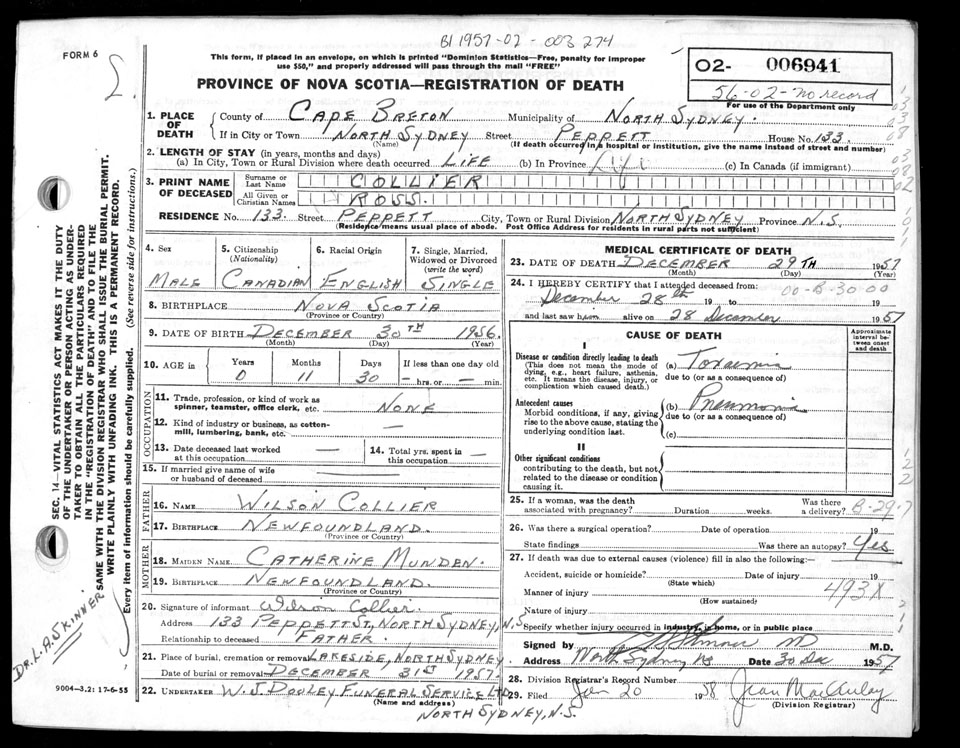 BI 1957-02-003274
FORM 6
This form, if placed in an envelope, on which is printed "Dominion Statistics—Free, penalty for improper
use $50," and properly addressed will pass through the mail "FREE"
PROVINCE OF NOVA SCOTIA—REGISTRATION OF DEATH
02- 006941
56-02-no record
For use of the Department only
1. PLACE OF DEATH
County of CAPE BRETON Municipality of NORTH SYDNEY.
If in City or Town NORTH SYDNEY Street PEPPETT House No. 133.
(Name) (If death occurred in a hospital or institution, give the name instead of street and number)
2. LENGTH OF STAY (in years, months and days)
(a) In City, Town or Rural Division where death occurred LIFE (b) In Province Life (c) In Canada (if immigrant)
3. PRINT NAME OF DECEASED
Surname or Last Name COLLIER
All Given or Christian Names ROSS.
RESIDENCE No. 133. Street PEPPETT City, Town or Rural Division NORTH SYDNEY Province N.S.
(Residence means usual place of abode. Post Office Address for residents in rural parts not sufficient)
4. Sex
MALE
5. Citizenship (Nationality)
CANADIAN
6. Racial Origin
ENGLISH
7. Single, Married, Widowed or Divorced (write the word)
SINGLE
8. BIRTHPLACE NOVA SCOTIA
(Province or Country)
9. DATE OF BIRTH DECEMBER 30TH 1956.
(Month) (Day) (Year)
10. AGE in
Years Months Days If less than one day old
0 11 30 — hrs. or — min.
OCCUPATION
11. Trade, profession, or kind of work as
spinner, teamster, office clerk, etc. NONE
12. Kind of industry or business, as cotton-
mill, lumbering, bank, etc. —
13. Date deceased last worked
at this occupation —
14. Total yrs. spent in
this occupation —
15. If married give name of wife
or husband of deceased —
FATHER
16. NAME WILSON COLLIER
17. BIRTHPLACE NEWFOUNDLAND.
(Province or Country)
MOTHER
18. MAIDEN NAME CATHERINE MUNDEN.
19. BIRTHPLACE NEWFOUNDLAND.
(Province or Country)
20. Signature of informant Wilson Collier.
Address 133 PEPPETT ST, NORTH SYDNEY, N.S
Relationship to deceased FATHER.
21. Place of burial, cremation or removal LAKESIDE, NORTH SYDNEY
Date of burial or removal DECEMBER 31ST 1957.
22. UNDERTAKER W. J. DOOLEY FUNERAL SERVICE LTD
(Name and address)
NORTH SYDNEY, N.S.
MEDICAL CERTIFICATE OF DEATH
23. DATE OF DEATH DECEMBER 29TH 1957
(Month) (Day) (Year)
24. I HEREBY CERTIFY that I attended deceased from:
00-B-30 00
December 28th 19 to 19
and last saw him alive on 28 December 1957
CAUSE OF DEATH
Approximate interval between onset and death
I
Disease or condition directly leading to death
(This does not mean the mode of
dying, e.g., heart failure, asthenia,
etc. It means the disease, injury, or
complication which caused death.)
(a) Toxaemia
due to (or as a consequence of)
Antecedent causes
Morbid conditions, if any, giving
rise to the above cause, stating the
underlying condition last.
(b) Pneumonia
due to (or as a consequence of)
(c)
II
Other significant conditions
contributing to the death, but not
related to the disease or condition
causing it.
25. If a woman, was the death
associated with pregnancy? Duration weeks. Was there a delivery?
B-29-7
26. Was there a surgical operation? Date of operation 19
State findings Was there an autopsy? Yes
27. If death was due to external causes (violence) fill in also the following:—
Accident, suicide or homicide? Date of injury 19
(State which)
Manner of injury 493X
(How sustained)
Nature of injury
Specify whether injury occurred in industry, in home, or in public place
Signed by MD M.D.
Address North Sydney NS Date 30 Dec 1957
28. Division Registrar's Record Number
29. Filed Jan 20 1958 Jean MacAulay
(Division Registrar)
SEC. 14—VITAL STATISTICS ACT MAKES IT THE DUTY
OF THE UNDERTAKER OR PERSON ACTING AS UNDER-
TAKER TO OBTAIN ALL THE PARTICULARS REQUIRED
IN THE "REGISTRATION OF DEATH" AND TO FILE THE
SAME WITH THE DIVISION REGISTRAR WHO SHALL ISSUE THE BURIAL PERMIT.
WRITE PLAINLY WITH UNFADING INK. THIS IS A PERMANENT RECORD.
Every item of information should be carefully supplied. (See reverse side for instructions.)
DR. L. A. SKINNER
9004—3.2: 17-6-55